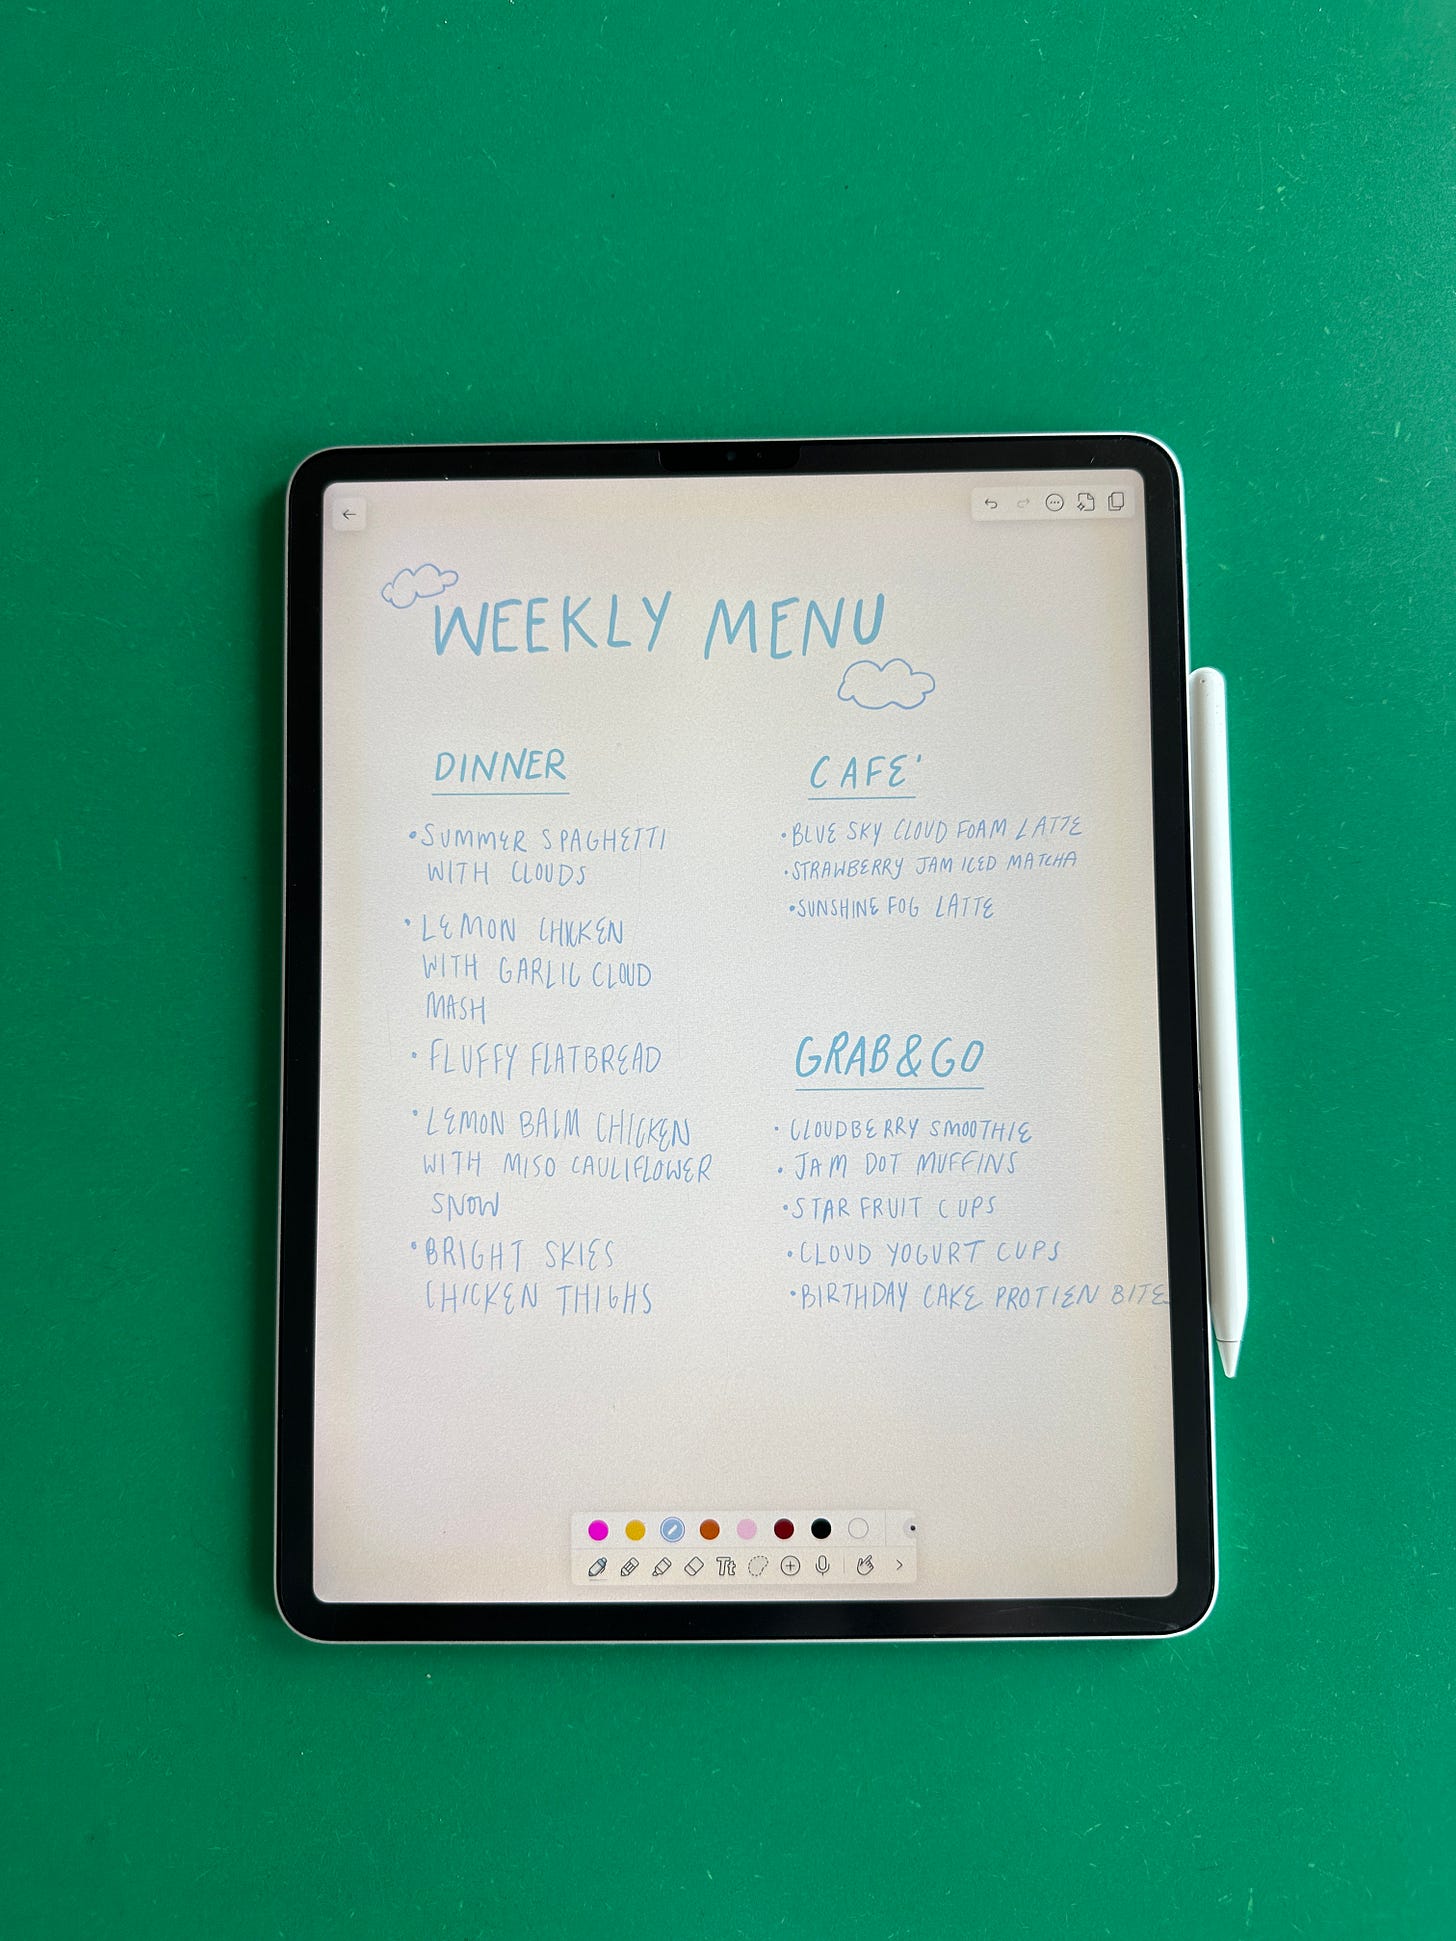 WEEKLY MENU
DINNER
•SUMMER SPAGHETTI
WITH CLOUDS
•LEMON CHICKEN
WITH GARLIC CLOUD
MASH
•FLUFFY FLATBREAD
•LEMON BALM CHICKEN
WITH MISO CAULIFLOWER
SNOW
•BRIGHT SKIES
CHICKEN THIGHS
CAFE'
•BLUE SKY CLOUD FOAM LATTE
•STRAWBERRY JAM ICED MATCHA
•SUNSHINE FOG LATTE
GRAB&GO
•CLOUDBERRY SMOOTHIE
•JAM DOT MUFFINS
•STAR FRUIT CUPS
•CLOUD YOGURT CUPS
•BIRTHDAY CAKE PROTIEN BITE
Tt